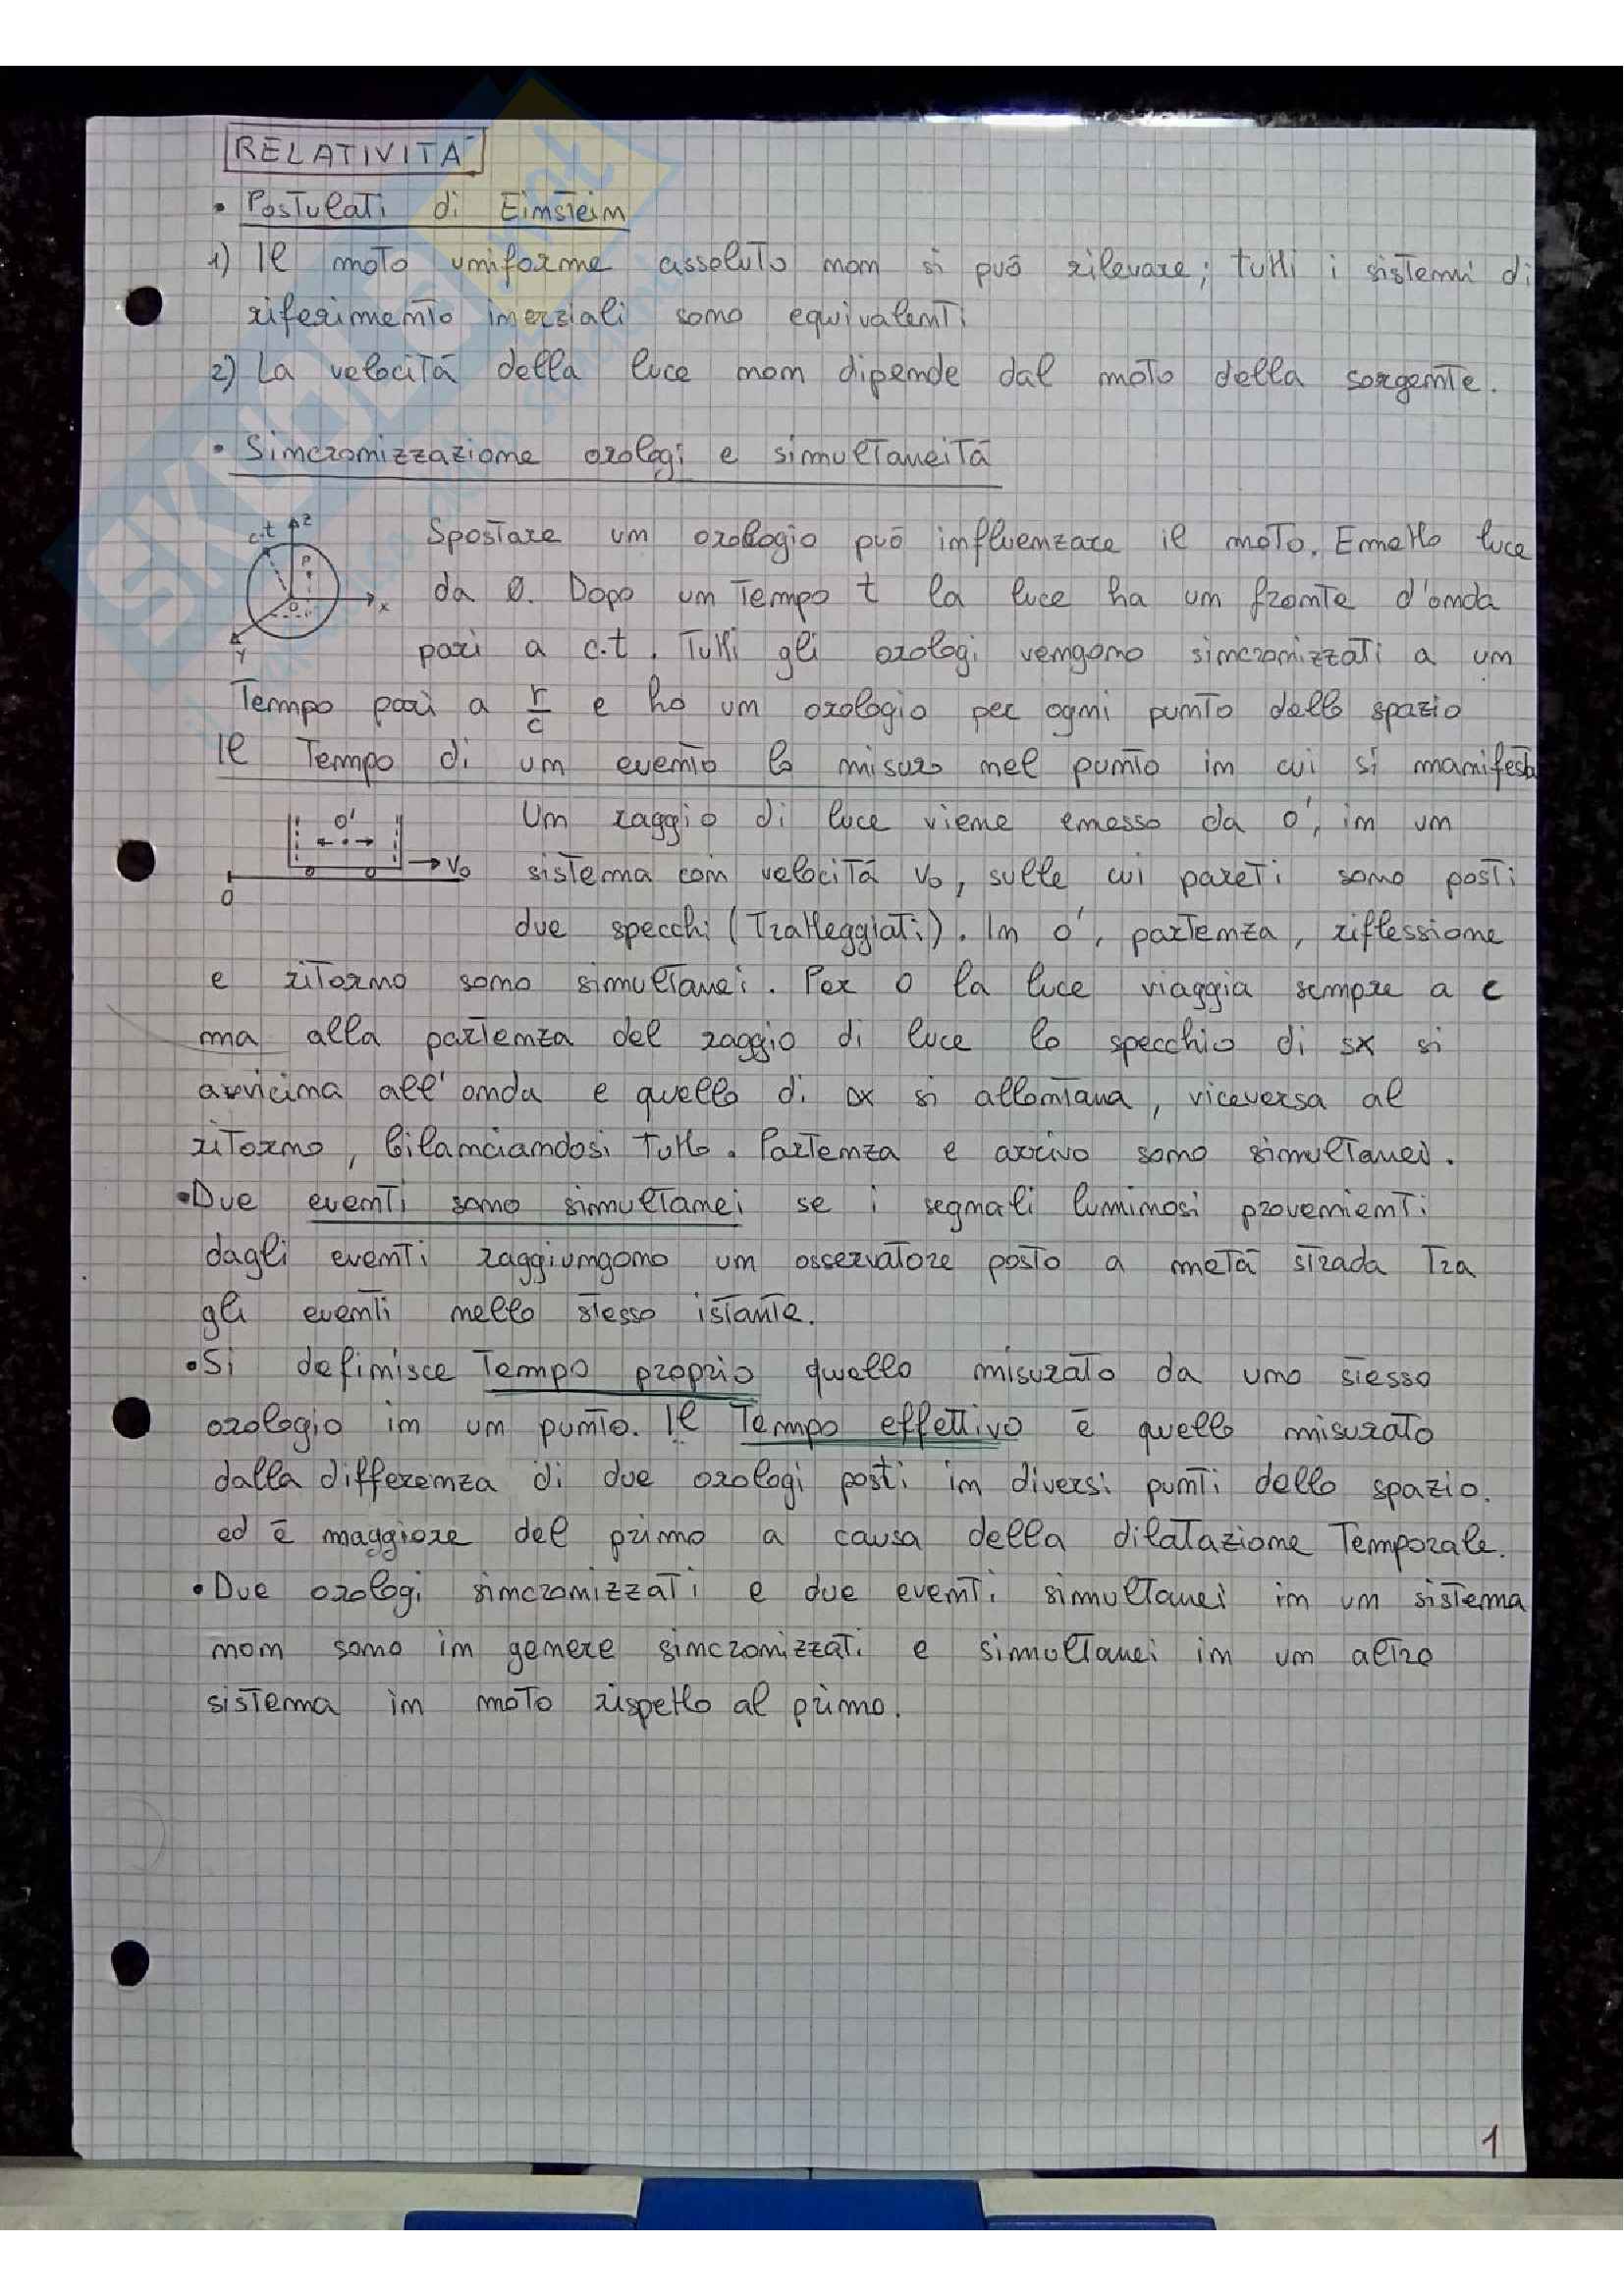 RELATIVITÀ
• Postulati di Einstein
1) Il moto uniforme assoluto non si può rilevare; tutti i sistemi di
riferimento inerziali sono equivalenti
2) La velocità della luce non dipende dal moto della sorgente.
• Sincronizzazione orologi e simultaneità
c·t z
P
O x
Y
Spostare un orologio può influenzare il moto. Emetto luce
da O. Dopo un tempo t la luce ha un fronte d'onda
pari a c·t. Tutti gli orologi vengono sincronizzati a un
tempo pari a r/c e ho un orologio per ogni punto dello spazio
Il tempo di un evento lo misuro nel punto in cui si manifesta
O'
V₀
O
Un raggio di luce viene emesso da O', in un
sistema con velocità V₀, sulle cui pareti sono posti
due specchi (tratteggiati). In O', partenza, riflessione
e ritorno sono simultanei. Per O la luce viaggia sempre a c
ma alla partenza del raggio di luce lo specchio di sx si
avvicina all'onda e quello di dx si allontana, viceversa al
ritorno, bilanciandosi tutto. Partenza e arrivo sono simultanei.
• Due eventi sono simultanei se i segnali luminosi provenienti
dagli eventi raggiungono un osservatore posto a metà strada tra
gli eventi nello stesso istante.
• Si definisce tempo proprio quello misurato da uno stesso
orologio in un punto. Il tempo effettivo è quello misurato
dalla differenza di due orologi posti in diversi punti dello spazio.
ed è maggiore del primo a causa della dilatazione temporale.
• Due orologi sincronizzati e due eventi simultanei in un sistema
non sono in genere sincronizzati e simultanei in un altro
sistema in moto rispetto al primo.
1